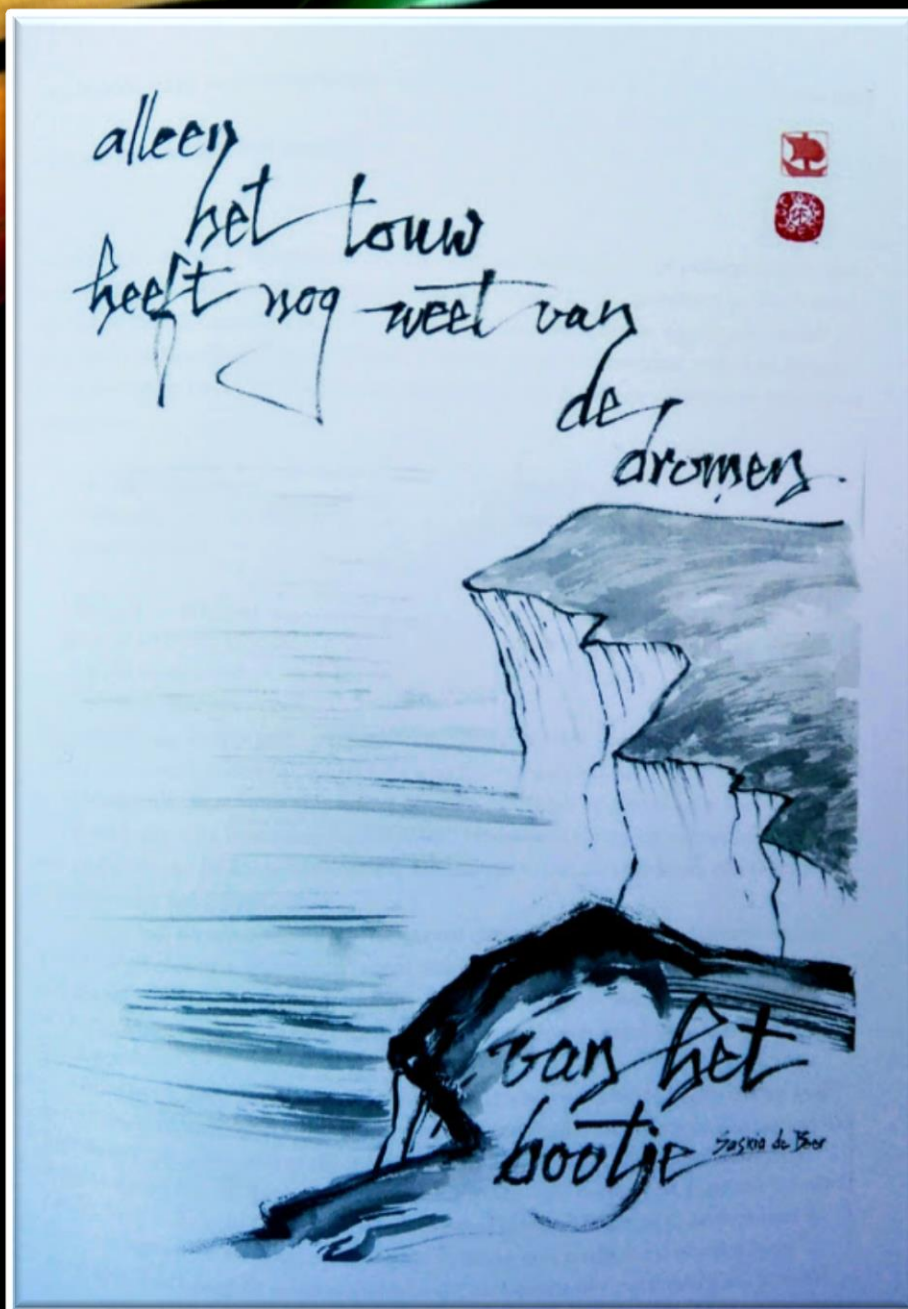 alleen
het touw
heeft nog weet van
de
dromen
van het
bootje
Saskia de Boer